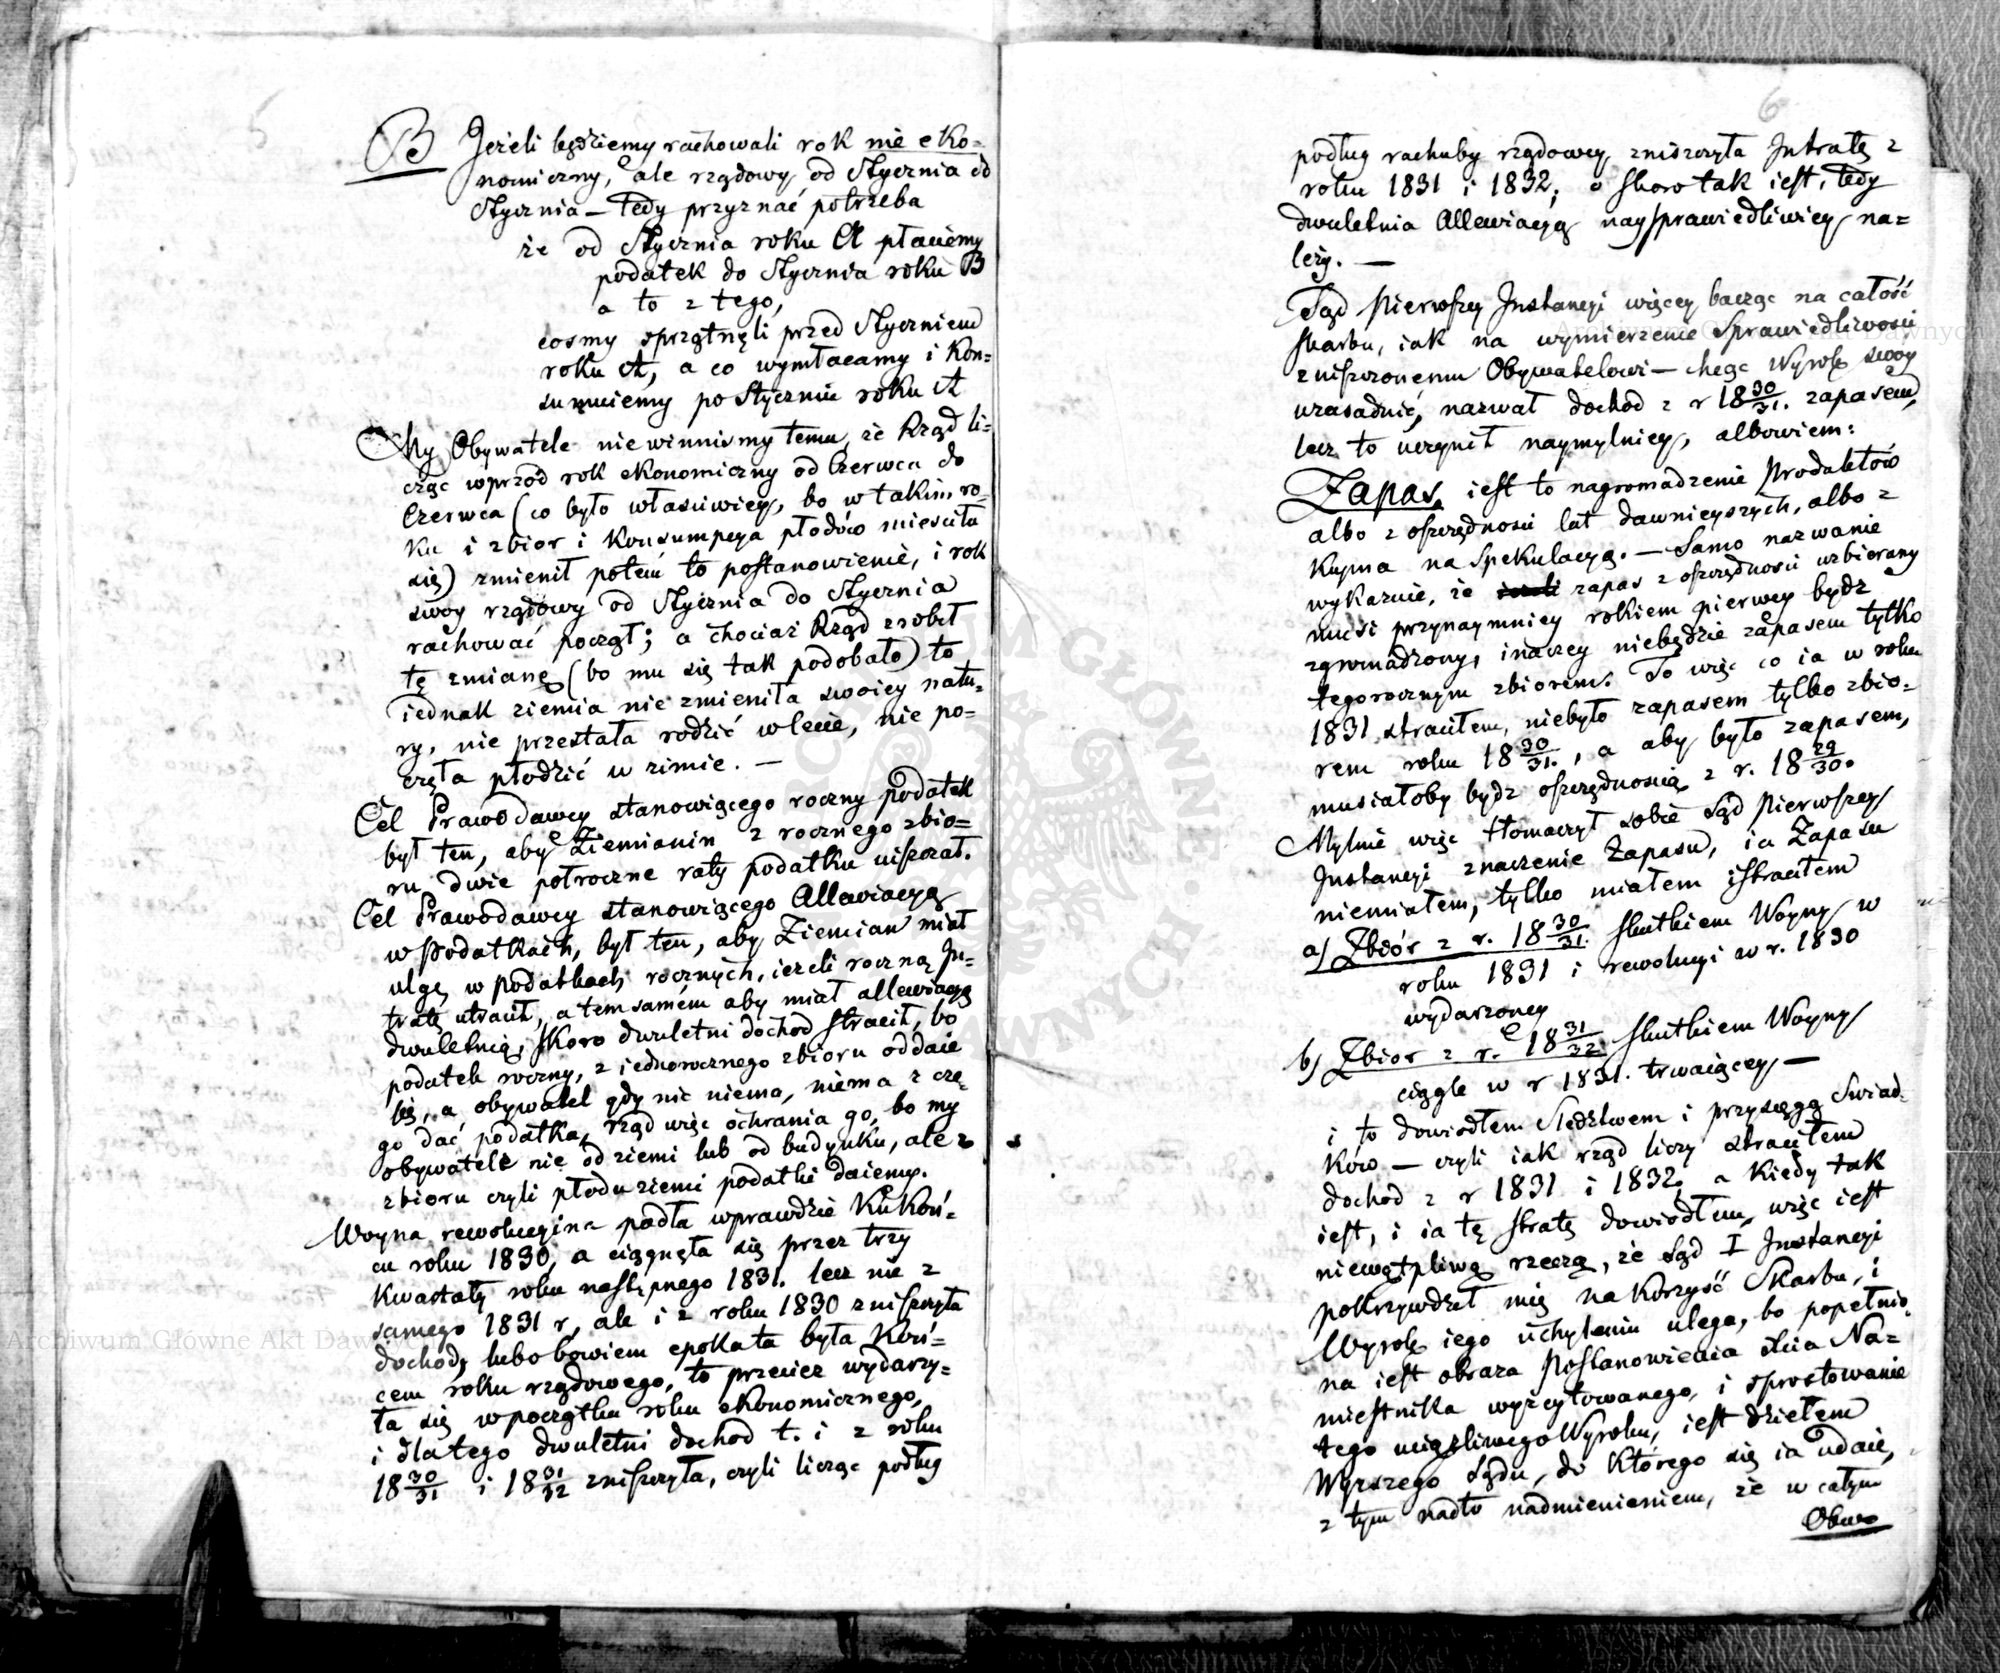 5
B Jeżeli będziemy rachowali rok nie eko=
nomiczny, ale rządowy od Stycznia do
Stycznia — tedy przyznać potrzeba
że od Stycznia roku A płaciemy
podatek do Stycznia roku B
a to z tego,
cosmy sprzątnęli przed Styczniem
roku A, a co wymłacamy i kon=
sumuiemy po Styczniu roku A
My Obywatele niewinniśmy temu, że Rząd li=
cząc wprzod rok ekonomiczny od Czerwca do
Czerwca (co było właściwiey, bo w takim ro=
ku i zbior i konsumpcya płodów mieściła
się) zmienił potem to postanowienie, i rok
swoy rządowy od Stycznia do Stycznia
rachować począł; a chociaż Rząd zrobił
tę zmianę (bo mu się tak podobało) to
iednak ziemia nie zmieniła swoiey natu=
ry, nie przestała rodzić w lecie, nie po=
częła płodzić w zimie. —
Cel Prawodawcy stanowiącego roczny podatek
był ten, aby Ziemianin z rocznego zbio=
ru dwie połroczne raty podatku uiszczał.
Cel Prawodawcy stanowiącego Allewiacyą
w Podatkach, był ten, aby Ziemian miał
ulgę w Podatkach rocznych, ieżeli roczną In=
tratę utracił, a tem samém aby miał allewiacyą
dwuletnią, skoro dwuletni dochod stracił, bo
podatek roczny, z iednorocznego zbioru oddaie
się, a obywatel gdy nic niema, niema z cze=
go dać podatku, rząd więc ochrania go, bo my
obywatele nie od ziemi lub od budynku, ale z
zbioru czyli płodu ziemi podatki daiemy.
Woyna rewolucyina padła wprawdzie ku koń=
cu roku 1830, a ciągnęła się przez trzy
kwartały roku następnego 1831. lecz nie z
samego 1831 r, ale i z roku 1830 zniszczyła
dochody, lubo bowiem epoka ta była koń=
cem roku rządowego, to przecież wydarzy=
ła się w początku roku ekonomicznego,
i dlatego dwuletni dochod t. i z roku
18 30/31 i 18 31/32 zniszczyła, czyli licząc podług
6
podług rachuby rządowey zniszczyła Intratę z
roku 1831 i 1832; a skoro tak iest, tedy
dwuletnia Allewiacya naysprawiedliwiey na=
leży. —
Sąd Pierwszey Instancyi więcey bacząc na całość
Skarbu, iak na wymierzenie Sprawiedliwości
zniszczonemu Obywatelowi — chcąc Wyrok swoy
uzasadnić, nazwał dochod z r 18 30/31. zapasem,
lecz to uczynił naymylniey, albowiem:
Zapas, iest to nagromadzenie Produktów
albo z oszczędności lat dawnieyszych, albo z
kupna na Spekulacyą. — Samo nazwanie
wykazuie, że zapas z oszczędności uzbierany
musi przynaymniey rokiem pierwey bydź
zgromadzony, inaczey niebędzie zapasem tylko
tegorocznym zbiorem. To więc co ia w roku
1831 straciłem, niebyło zapasem tylko zbio=
rem roku 18 30/31., a aby było zapasem,
musiałoby bydź oszczędnością z r. 18 29/30.
Mylnie więc tłomaczył sobie Sąd Pierwszey
Instancyi znaczenie Zapasu, ia Zapasu
niemiałem, tylko miałem i straciłem
a) Zbiór z r. 18 30/31. skutkiem Woyny w
roku 1831 i rewolucyi w r. 1830
wydarzoney
b) Zbior z r. 18 31/32 skutkiem Woyny
ciągle w r 1831. trwaiącey —
i to dowiodłem Śledztwem i przysięgą Świad=
ków — czyli iak rząd liczy straciłem
dochod z r 1831 i 1832, a kiedy tak
iest, i ia tę stratę dowiodłem, więc iest
niewątpliwą rzeczą, że Sąd I Instancyi
pokrzywdził mię na korzyść Skarbu, i
Wyrok iego uchyleniu ulega, bo popełnio=
na iest obraza Postanowienia Xcia Na=
miestnika wyżcytowanego, i sprostowanie
tego uciążliwego Wyroku, iest dziełem
Wyższego Sądu, do którego się ia udaię,
z tym nadto nadmienieniem, że w całym